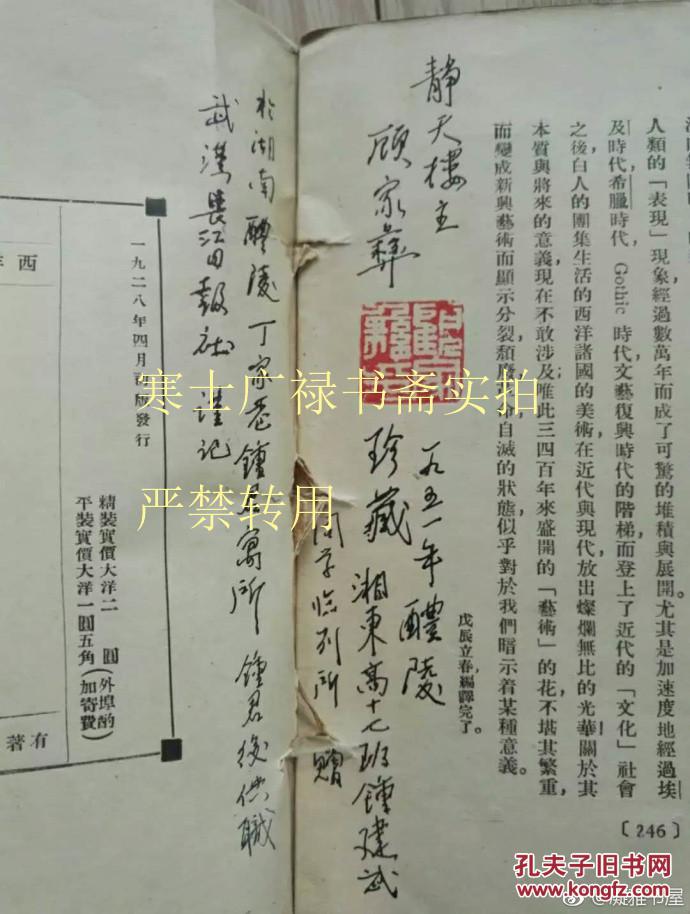 人類的「表現」現象經過數萬年而成了可驚的堆積與展開。尤其是加速度地經過埃
及時代,希臘時代,Gothic時代,文藝復興時代的階梯,而登上了近代的「文化」社會
之後,白人的團集生活的西洋諸國的美術在近代與現代,放出燦爛無比的光華關於其
本質與將來的意義,現在不敢涉及,唯此三四百年來盛開的「藝術」的花,不堪其繁重,
而變成新興藝術而顯示分裂,頹廢
自滅的狀態,似乎對於我們暗示着某種意義。
戊辰立春,編譯完了。
〔246〕
靜天樓主
顧家彝
珍藏
一九五一年醴陵
湘東高十七班鍾建武
同學臨別所贈
於湖南醴陵丁家巷鍾
寓所 鍾君後供職
武漢長江日報社 謹記
一九二八年四月再版發行
精裝實價大洋二圓
平裝實價大洋一圓五角
(外埠酌加寄費)
西
有著
寒士广禄书斋实拍
严禁转用
孔夫子旧书网
www.kongfz.com
雅书屋